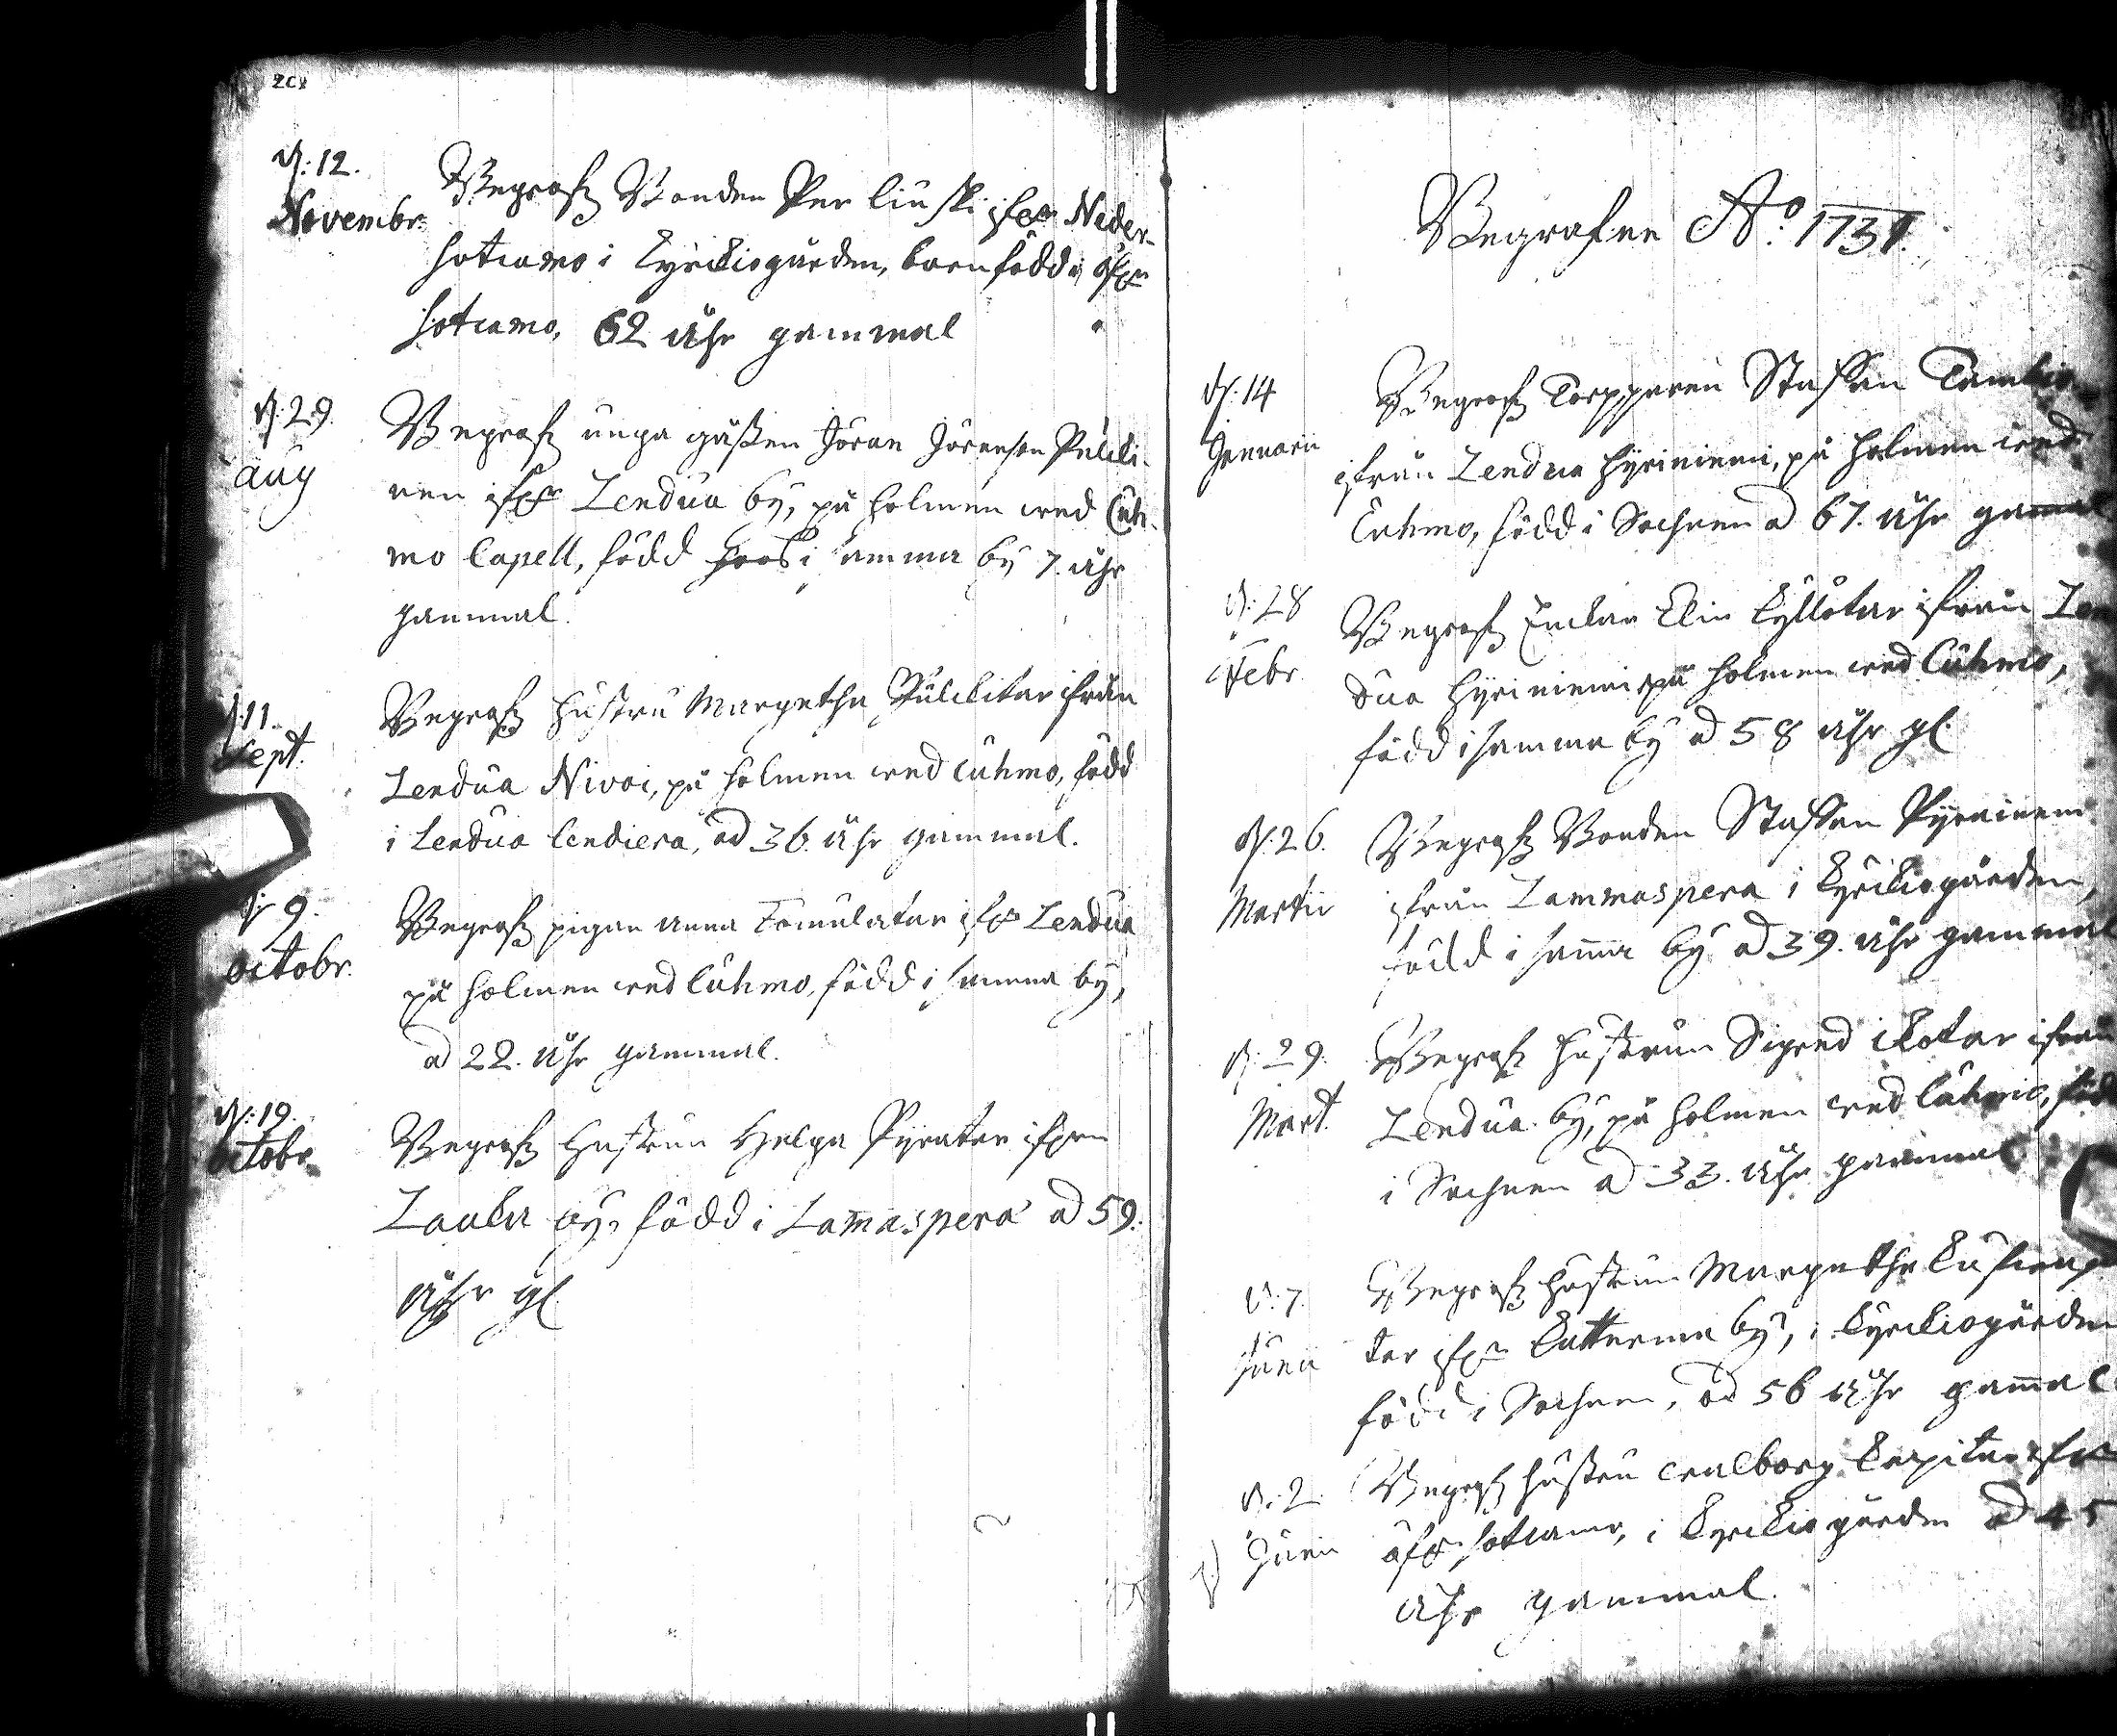 d. 12.
Novembr.
Begrofz Bonden Per Liuski ifrån Neder-
sotcamo i Kyrkiogården, barnfödd i öfre
sotcamo, 62 åhr gammal
d. 29.
aug
Begrofz unga gåssen Jöran Jöransson Pulki-
nen ifrån Lendua by, på holmen wed Cuh-
mo Capell, född i samma by 7. åhr
gammal.
d. 11.
Sept.
Begrofz hustru Margetha Pulkitar ifrån
Lendua Nivoi, på holmen wed Cuhmo, född
i Lendua Lendiera, ad 36 åhr gammal.
d. 9.
octobr.
Begrofz pigan Anna Tomulatar ifr Lendua
på holmen wed Cuhmo, född i samma by,
ad 22. åhr gammal.
d. 19.
octobr.
Begrofz Hustrun Helga Pyrätar ifrån
by, född i Lammaspera ad 59.
åhr gl
Begrafne Ao. 1731.
d. 14
Januarii
Begrofz Torpparen Staffan
ifrån Lendua Hyriniemi, på holmen wed
Cuhmo, född i Sochnen ad 67. åhr gammal
d. 28
Febr.
Begrofz Enckan Elin Kyllötar ifrån Len
dua Hyriniemi på holmen wed Cuhmo,
född i samma by ad 58 åhr gl
d. 26.
Martii
Begrofz Bonden Staffan Pyräinen
ifrån Lammaspera i Kyrkiogården,
född i samma by ad 39. åhr gammal
d. 29.
Mart.
Begrofz Hustrun Sigrid ifrån
Lendua by, på holmen wed Cuhmo, född
i Sochnen ad 33. åhr gammal
d. 7.
Begrofz Hustrun Margetha
tar ifrån by, i Kyrkiogården
född i Sochnen, ad 56 åhr gammal
d. 2.
Juni
Begrofz hustru walborg ifr
öfr sotcamo, i Kyrkiogården ad 45
åhr gammal.